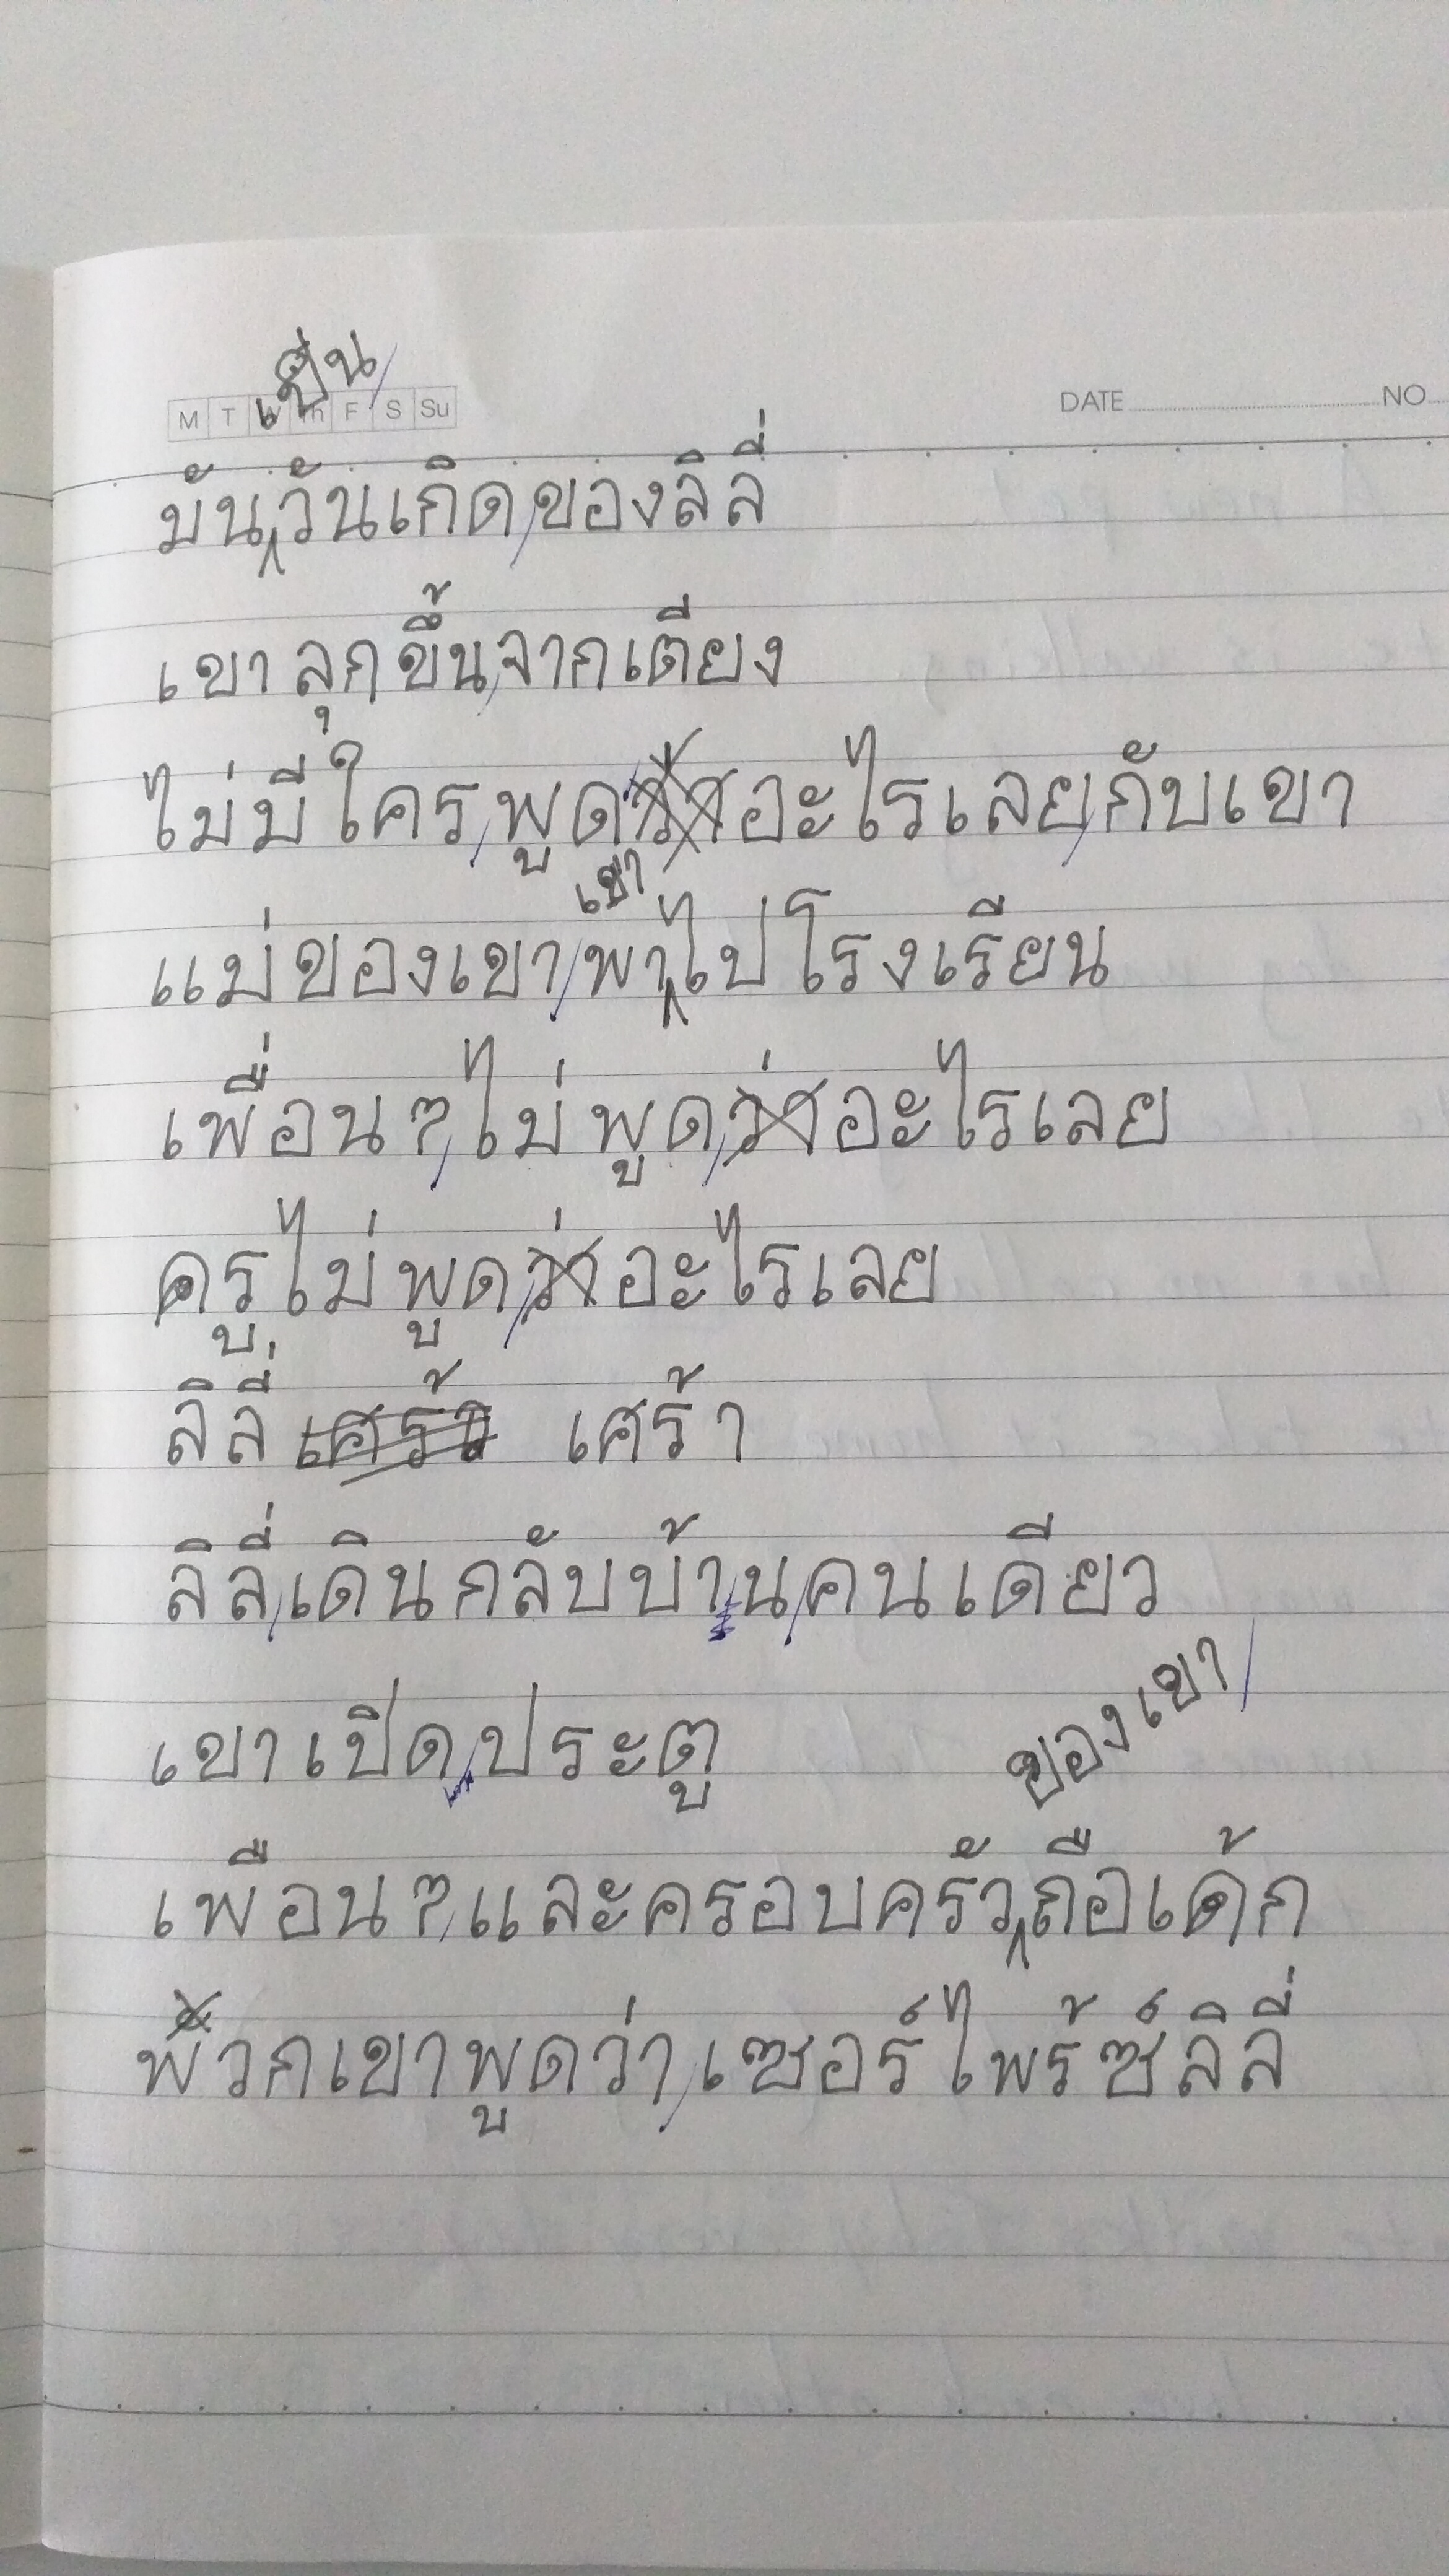 เป็น
M T W Th F S Su
DATE NO
มันวันเกิดของลิลี่
เขาลุกขึ้นจากเตียง
ไม่มีใครพูดว่าอะไรเลยกับเขา
เขา
แม่ของเขาพาไปโรงเรียน
เพื่อนๆไม่พูดว่าอะไรเลย
ครูไม่พูดว่าอะไรเลย
ลิลี่ เศร้า เศร้า
ลิลี่เดินกลับบ้านคนเดียว
ของเขา
เขาเปิดประตู
เพือนๆและครอบครัวถือเค้ก
พวกเขาพูดว่าเซอร์ไพร้ซ์ลิลี่